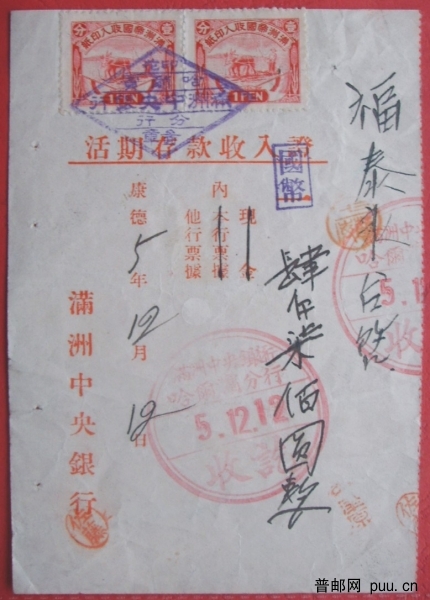 滿洲帝國收入印紙
壹分
1 FEN
滿洲帝國收入印紙
壹分
1 FEN
滿洲中央銀行
分行
活期存款收入證
國幣
福泰
現金
內 本行票據
他行票據
肆仟柒佰圓整
康德5年12月12日
滿洲中央銀行
滿洲中央銀行
哈爾濱分行
5.12.12
收訖
5.12
收
普邮网 puu.cn